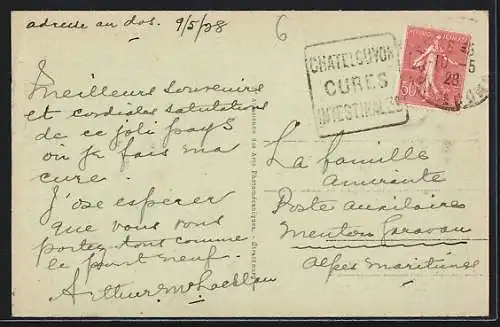 adresse au dos. 9/5/28
6
CHATELGUYON
CURES
INTESTINALES
10-5
28
50
Meilleurs souvenirs
et cordiales salutations
de ce joli pays
où je fais ma
cure.
J'ose espérer
que vous vous
portez tous comme
le pont neuf.
Arthur McLachlan
La famille
Amirante
Poste auxiliaires
Menton Garavan
Alpes Maritimes